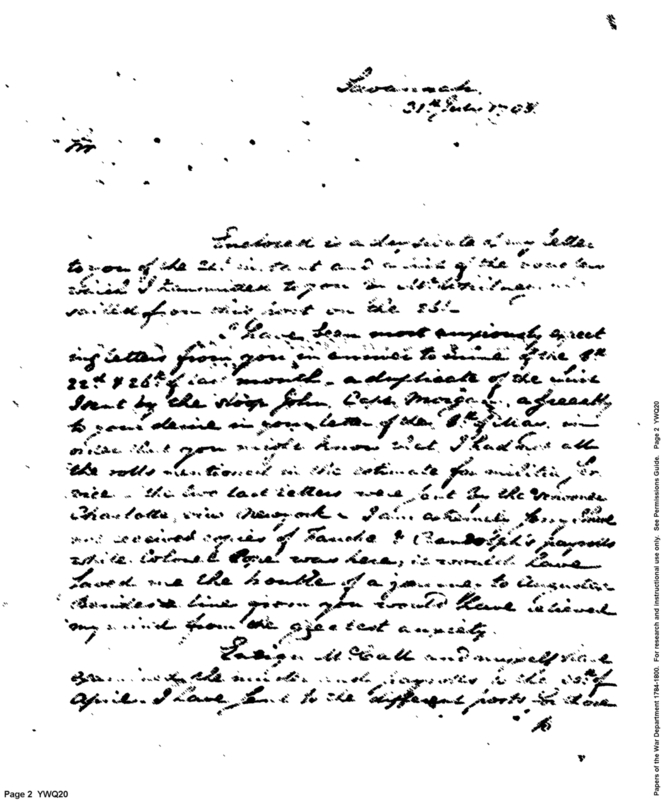 Savannah
31st July
Sir
Enclosed is a duplicate of my letter
to you of the 21st instant and a
which I transmitted to you
sailed from this port on the 25th
I have been most anxiously expect
ing letters from you in answer to mine of the 8th
22d & 26th of last month - a duplicate of the
I sent by the sloop John, Capt. Morgan, agreeably
to your desire in your letter of the 8th of in
order that you might know that I had not all
the rolls mentioned in the estimate for militia ser
vice - the two last letters were sent by the
Charlotte, via Newyork - I am extremely sorry
not received copies of Fauche & Randolph's payrolls
while Colonel was here, it would have
saved me the trouble of a journey to Augusta
Besides a line from you would have relieved
my mind from the greatest anxiety.
Ensign McCall and myself have
examined the muster and payrolls to the 30th of
April. I have sent to the different posts for those
Page 2 YWQ20
Papers of the War Department 1784-1800. For research and instructional use only. See Permissions Guide. Page 2 YWQ20